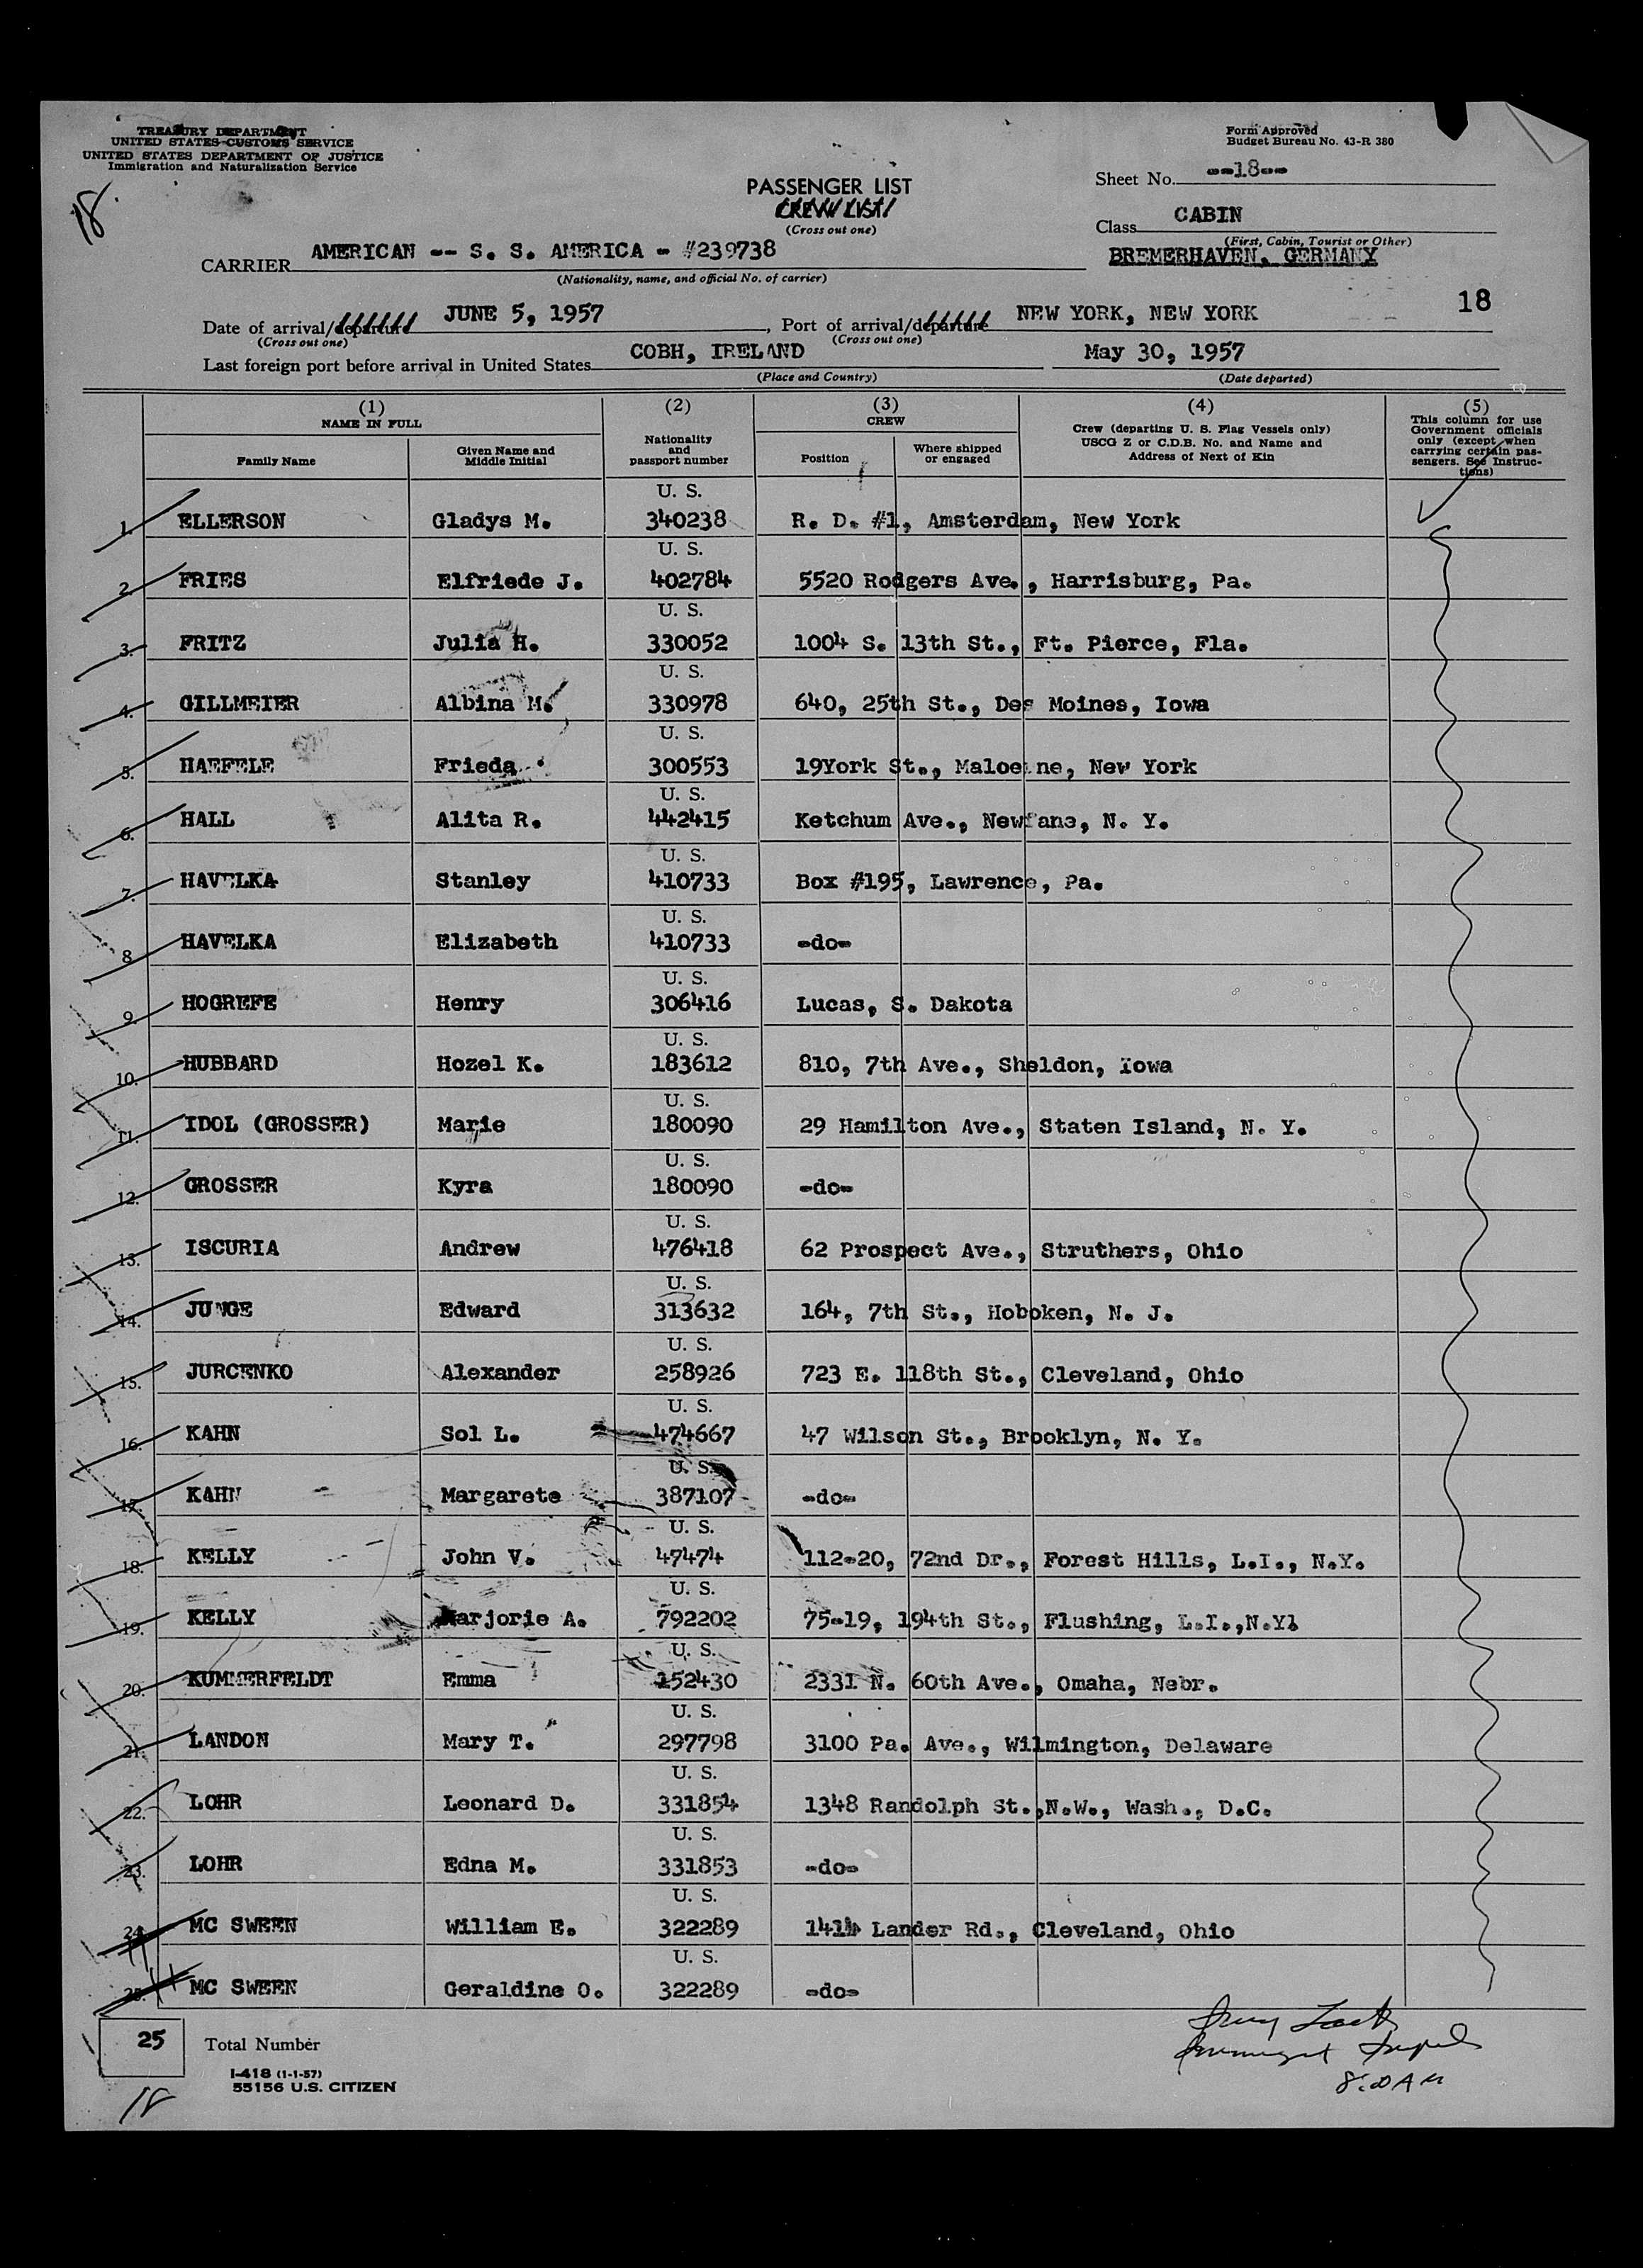 TREASURY DEPARTMENT
UNITED STATES CUSTOMS SERVICE
UNITED STATES DEPARTMENT OF JUSTICE
Immigration and Naturalization Service
Form Approved
Budget Bureau No. 43-R 380
18
Sheet No. --18--
PASSENGER LIST
CREW LIST
(Cross out one)
Class CABIN
(First, Cabin, Tourist or Other)
CARRIER AMERICAN -- S. S. AMERICA - #239738
(Nationality, name, and official No. of carrier)
BREMERHAVEN, GERMANY
18
Date of arrival/departure JUNE 5, 1957, Port of arrival/departure NEW YORK, NEW YORK
(Cross out one) (Cross out one)
Last foreign port before arrival in United States COBH, IRELAND May 30, 1957
(Place and Country) (Date departed)
(1) NAME IN FULL
Family Name
Given Name and Middle Initial
(2)
Nationality and passport number
(3) CREW
Position
Where shipped or engaged
(4)
Crew (departing U. S. Flag Vessels only)
USCG Z or C.D.B. No. and Name and
Address of Next of Kin
(5)
This column for use
Government officials
only (except when
carrying certain pas-
sengers. See Instruc-
tions)
1. ELLERSON Gladys M. U. S. 340238 R. D. #1, Amsterdam, New York
2. FRIES Elfriede J. U. S. 402784 5520 Rodgers Ave., Harrisburg, Pa.
3. FRITZ Julia H. U. S. 330052 1004 S. 13th St., Ft. Pierce, Fla.
4. GILLMEIER Albina M. U. S. 330978 640, 25th St., Des Moines, Iowa
5. HAEFELE Frieda U. S. 300553 19York St., Maloe ne, New York
6. HALL Alita R. U. S. 442415 Ketchum Ave., Newfane, N. Y.
7. HAVELKA Stanley U. S. 410733 Box #195, Lawrence, Pa.
8 HAVELKA Elizabeth U. S. 410733 -do-
9. HOGREFE Henry U. S. 306416 Lucas, S. Dakota
10. HUBBARD Hozel K. U. S. 183612 810, 7th Ave., Sheldon, Iowa
11. IDOL (GROSSER) Marie U. S. 180090 29 Hamilton Ave., Staten Island, N. Y.
12. GROSSER Kyra U. S. 180090 -do-
13. ISCURIA Andrew U. S. 476418 62 Prospect Ave., Struthers, Ohio
14. JUNGE Edward U. S. 313632 164, 7th St., Hoboken, N. J.
15. JURCENKO Alexander U. S. 258926 723 E. 118th St., Cleveland, Ohio
16. KAHN Sol L. U. S. 474667 47 Wilson St., Brooklyn, N. Y.
17. KAHN Margarete U. S. 387107 -do-
18. KELLY John V. U. S. 47474 112-20, 72nd Dr., Forest Hills, L.I., N.Y.
19. KELLY Marjorie A. U. S. 792202 75-19, 194th St., Flushing, L.I.,N.Y1
20. KUMMERFELDT Emma U. S. 152430 2331 N. 60th Ave., Omaha, Nebr.
21. LANDON Mary T. U. S. 297798 3100 Pa. Ave., Wilmington, Delaware
22. LOHR Leonard D. U. S. 331854 1348 Randolph St.,N.W., Wash., D.C.
23. LOHR Edna M. U. S. 331853 -do-
24. MC SWEEN William E. U. S. 322289 1414 Lander Rd., Cleveland, Ohio
25. MC SWEEN Geraldine O. U. S. 322289 -do-
25 Total Number
I-418 (1-1-57)
55156 U.S. CITIZEN
18
8:00 AM